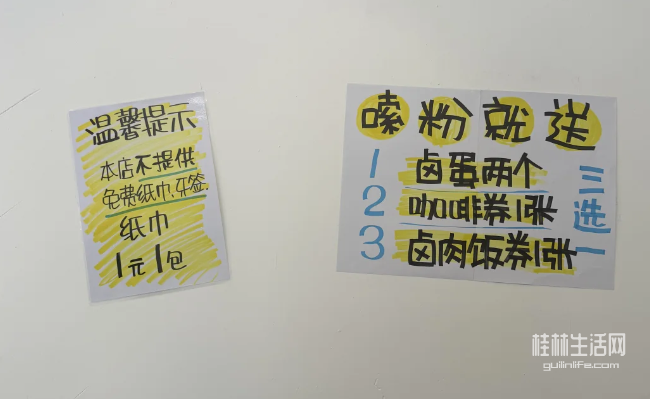 温馨提示
本店不提供
免费纸巾、牙签.
纸巾
1元1包
嗦粉就送
1 卤蛋两个
2 咖啡券1张
3 卤肉饭券1张
三选1
桂林生活网
guilinlife.com